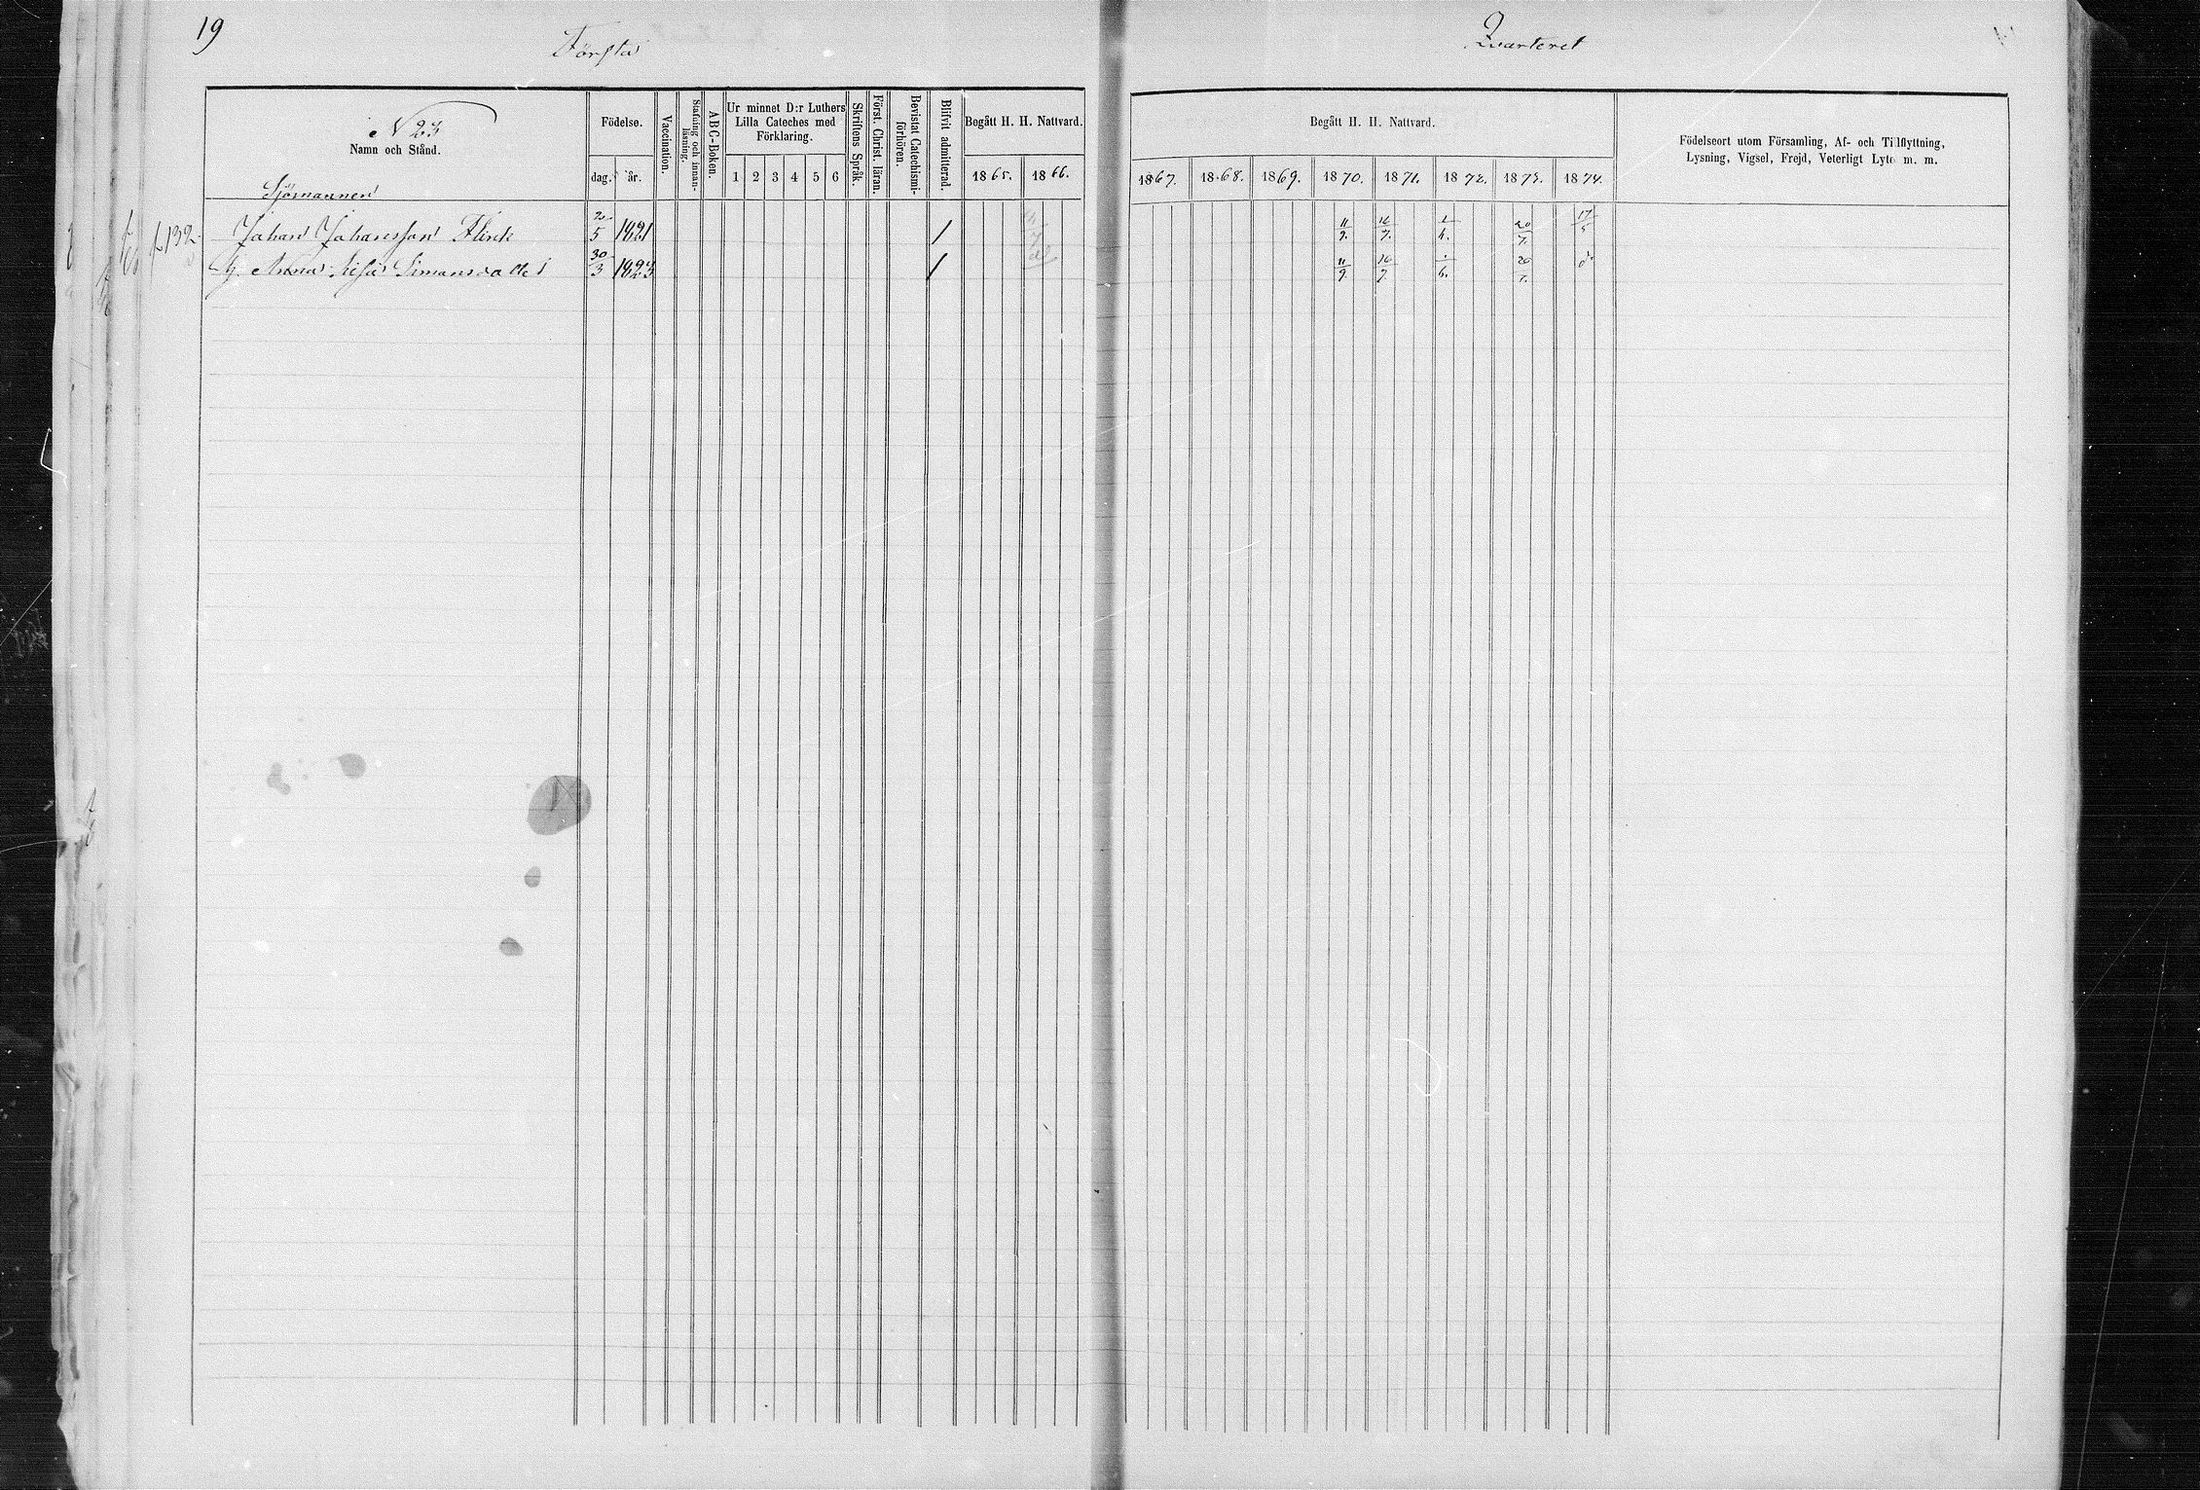 19
Första
Qvarteret
N 23
Namn och Stånd.
Födelse.
dag. år.
Vaccination.
Stafning och innanläsning.
ABC-Boken.
Ur minnet D:r Luthers
Lilla Cateches med
Förklaring.
1 2 3 4 5 6
Skriftens Språk.
Först. Christ. läran.
Bevistat Catechismiförhören.
Blifvit admitterad.
Begått H. H. Nattvard.
1865. 1866.
Begått H. H. Nattvard.
1867. 1868. 1869. 1870. 1871. 1872. 1873. 1874.
Födelseort utom Församling, Af- och Tillflyttning,
Lysning, Vigsel, Frejd, Veterligt Lyte m. m.
Sjömannen
132 Johan Johansson Flink 2/5 1821 / 11/9. 16/7. 20/7. 17/5
h. Anna Lisa Simonsdotter 30/3 1823 / 11/9. 16/7. 20/7.